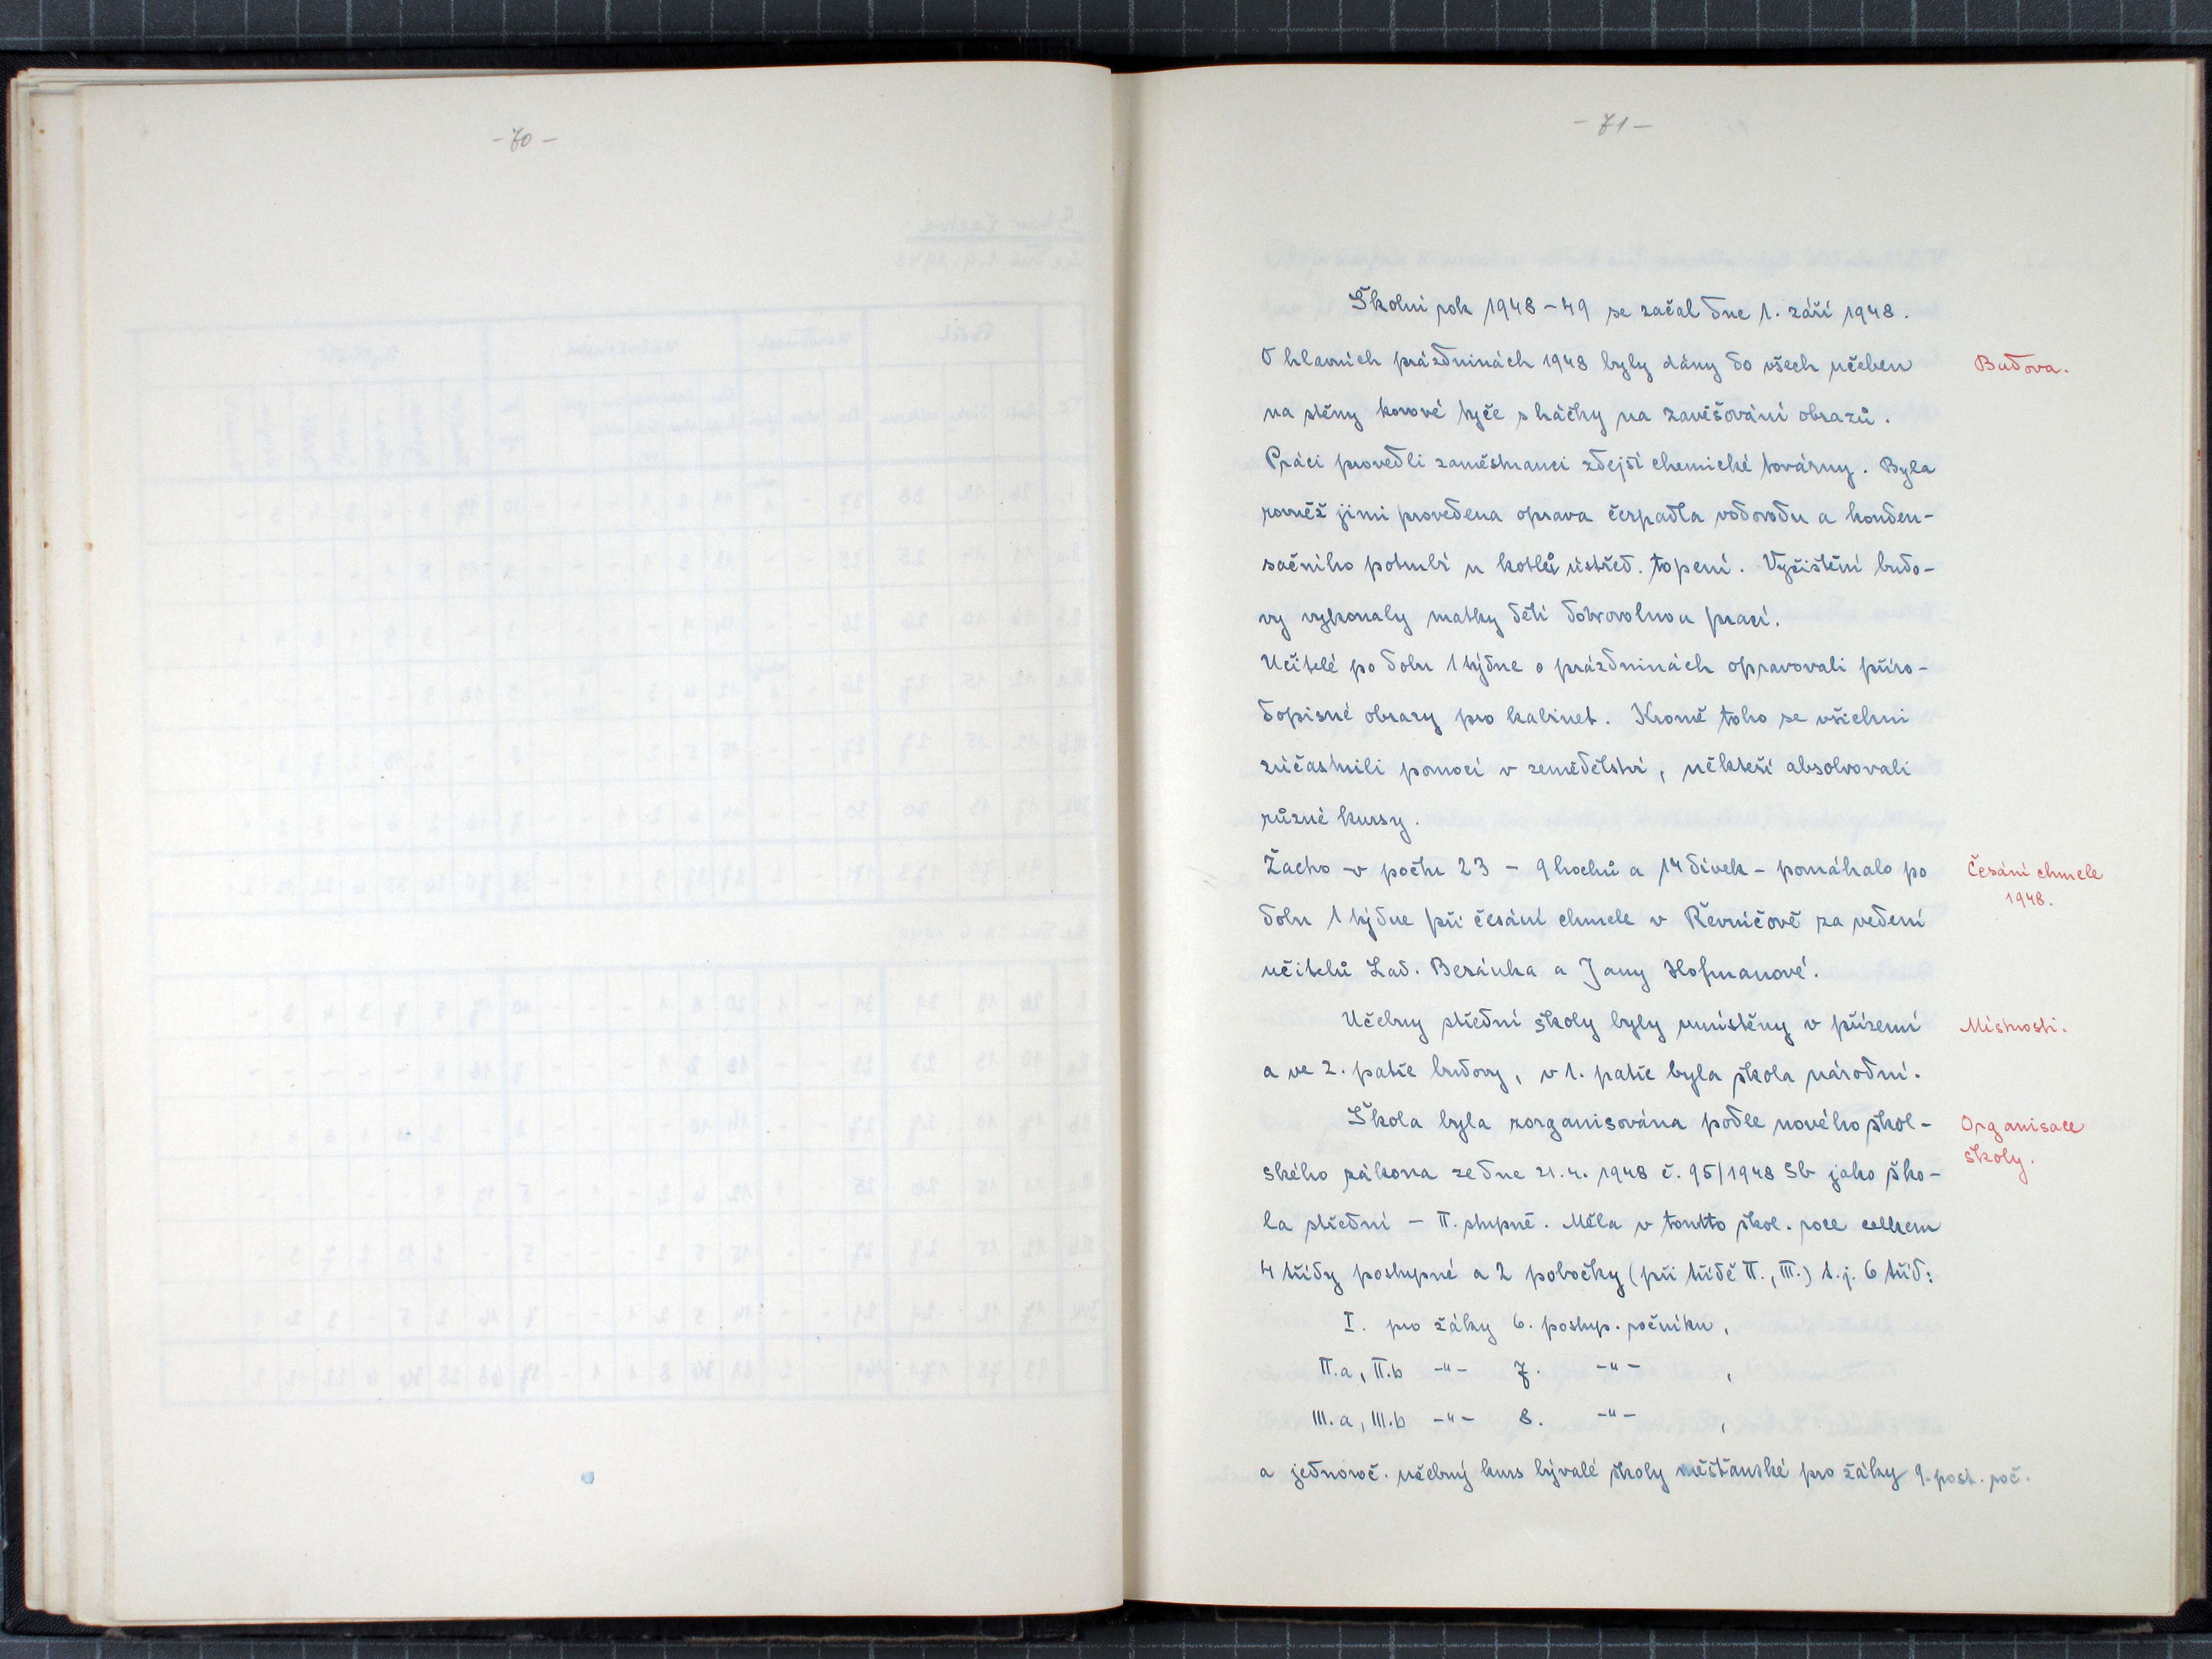 - 70 -
- 71 -
Školní rok 1948-49 se začal dne 1. září 1948.
O hlavních prázdninách 1948 byly dány do všech učeben
Budova.
na stěny kovové tyče s háčky na zavěšování obrazů.
Práci provedli zaměstnanci zdejší chemické továrny. Byla
rovněž jimi provedena oprava čerpadla vodovodu a konden-
sačního potrubí u kotlů ústřed. topení. Vyčištění budo-
vy vykonaly matky dětí dobrovolnou prací.
Učitelé po dobu 1 týdne o prázdninách opravovali příro-
dopisné obrazy pro kabinet. Kromě toho se všichni
zúčastnili pomoci v zemědělství, někteří absolvovali
různé kursy.
Žactvo v počtu 23 - 9 hochů a 14 dívek - pomáhalo po
Česání chmele
1948.
dobu 1 týdne při česání chmele v Řevničově za vedení
učitelů Lad. Beránka a Jany Hofmanové.
Učebny střední školy byly umístěny v přízemí
Místnosti.
a ve 2. patře budovy, v 1. patře byla škola národní.
Škola byla zorganisována podle nového škol-
Organisace
školy.
ského zákona ze dne 21.4. 1948 č. 95/1948 Sb jako ško-
la střední - II. stupně. Měla v tomto škol. roce celkem
4 třídy postupné a 2 pobočky (při třídě II., III.) t.j. 6 tříd:
I. pro žáky 6. postup. ročníku,
II.a, II.b -"- 7. -"- ,
III.a, III.b -"- 8. -"- ,
a jednoroč. učebný kurs bývalé školy měšťanské pro žáky 9. post. roč.